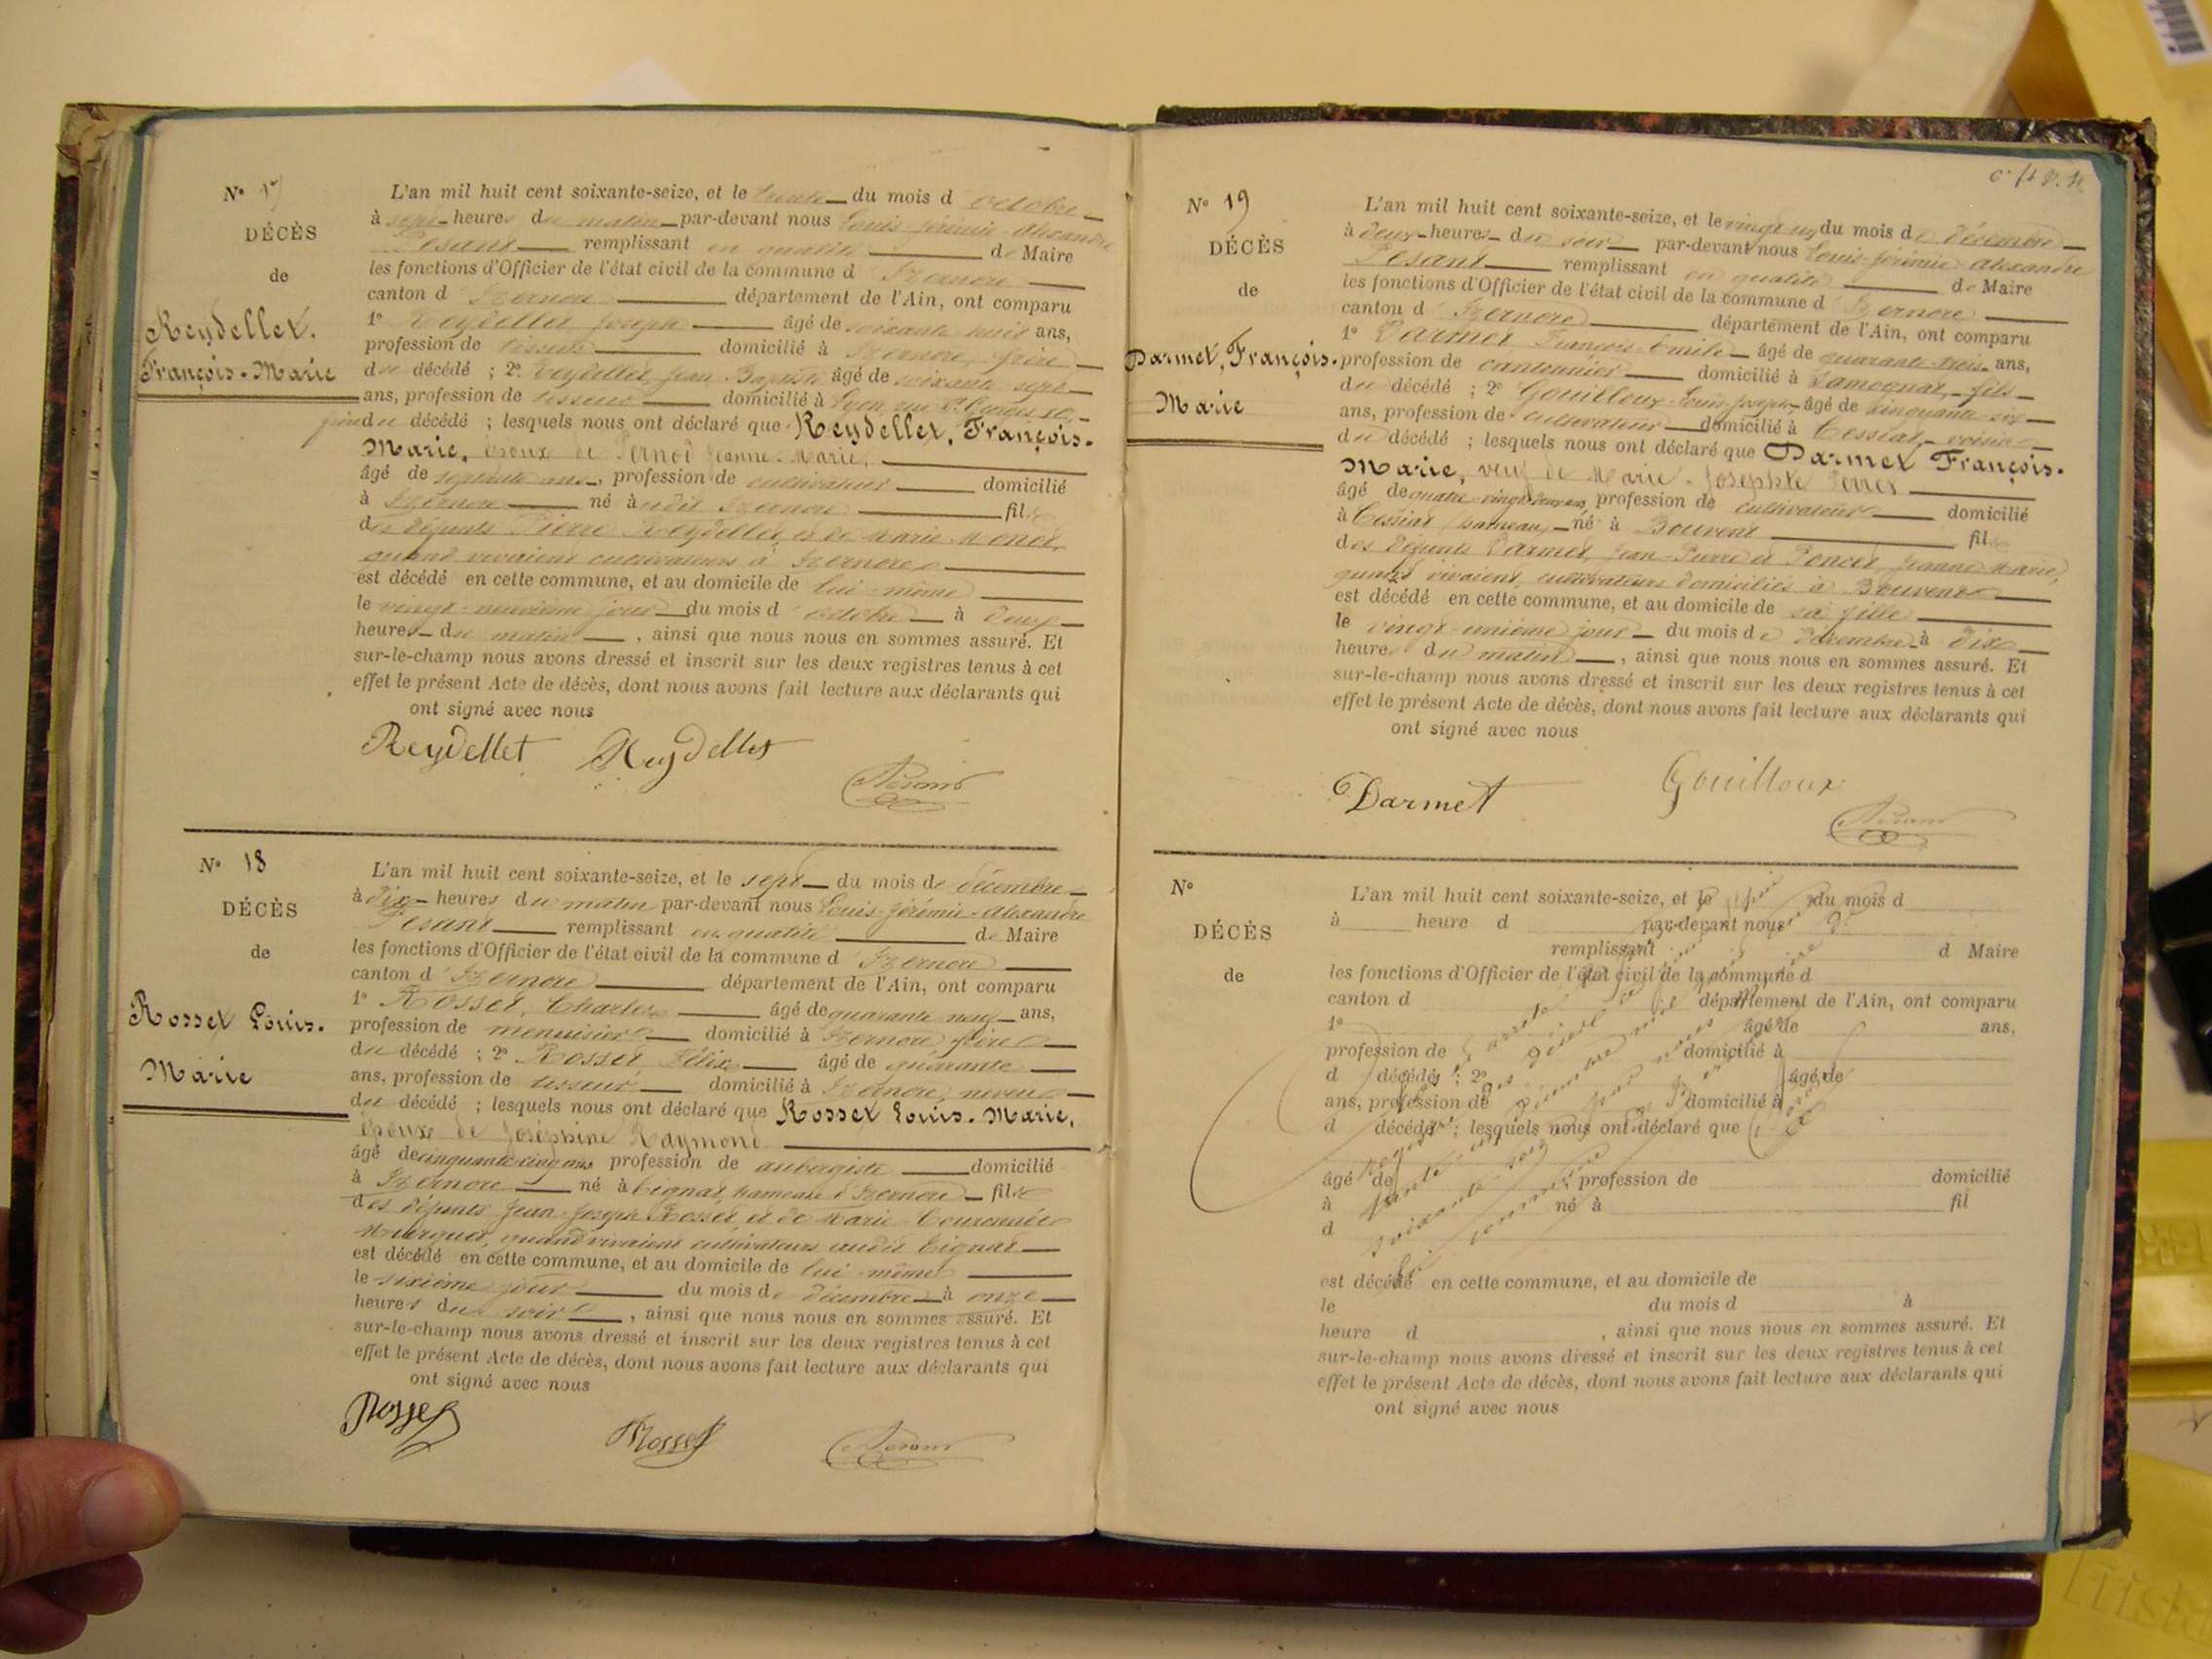 N° 17
DÉCÈS
de
Reydellet.
François-Marie
L'an mil huit cent soixante-seize, et le trente du mois d'octobre
à sept heures du matin par-devant nous Louis-Jérémie-Alexandre
Pesant remplissant en qualité de Maire
les fonctions d'Officier de l'état civil de la commune d'Izernore
canton d'Izernore département de l'Ain, ont comparu
1° Reydellet Joseph âgé de soixante-huit ans,
profession de tisseur domicilié à Izernore, frère
du décédé ; 2° Reydellet, Jean-Baptiste âgé de soixante sept
ans, profession de tisseur domicilié à Lyon rue
du décédé ; lesquels nous ont déclaré que Reydellet, François-
Marie, époux de Pernod Jeanne-Marie,
âgé de septante ans, profession de cultivateur domicilié
à Izernore né audit Izernore fils
des défunts Pierre Reydellet et de Marie
quand vivaient cultivateurs à Izernore
est décédé en cette commune, et au domicile de lui-même
le vingt-neuvième jour du mois d'octobre à deux
heures du matin, ainsi que nous nous en sommes assuré. Et
sur-le-champ nous avons dressé et inscrit sur les deux registres tenus à cet
effet le présent Acte de décès, dont nous avons fait lecture aux déclarants qui
ont signé avec nous
Reydellet Reydellet Pesant
N° 18
DÉCÈS
de
Rosset Louis-
Marie
L'an mil huit cent soixante-seize, et le sept du mois de décembre
à dix heures du matin par-devant nous Louis-Jérémie-Alexandre
Pesant remplissant en qualité de Maire
les fonctions d'Officier de l'état civil de la commune d'Izernore
canton d'Izernore département de l'Ain, ont comparu
1° Rosset, Charles âgé de quarante neuf ans,
profession de menuisier domicilié à Izernore frère
du décédé ; 2° Rosset Félix âgé de quarante
ans, profession de tisseur domicilié à Izernore, neveu
du décédé ; lesquels nous ont déclaré que Rosset Louis-Marie,
époux de Joséphine Raymond
âgé de cinquante cinq ans profession de aubergiste domicilié
à Izernore né à Tignat, hameau d'Izernore fils
des défunts Jean-Joseph Rosset et de Marie
quand vivaient cultivateurs audit Tignat
est décédé en cette commune, et au domicile de lui-même
le sixième jour du mois de décembre à onze
heures du soir, ainsi que nous nous en sommes assuré. Et
sur-le-champ nous avons dressé et inscrit sur les deux registres tenus à cet
effet le présent Acte de décès, dont nous avons fait lecture aux déclarants qui
ont signé avec nous
Rosset Rosset Pesant
N° 19
DÉCÈS
de
Darmet, François-
Marie
L'an mil huit cent soixante-seize, et le vingt un du mois de décembre
à deux heures du soir par-devant nous Louis-Jérémie-Alexandre
Pesant remplissant en qualité de Maire
les fonctions d'Officier de l'état civil de la commune d'Izernore
canton d'Izernore département de l'Ain, ont comparu
1° Darmet François-Émile âgé de quarante-trois ans,
profession de cantonnier domicilié à Samognat, fils
du décédé ; 2° Gouilloux Louis-Joseph âgé de cinquante-six
ans, profession de cultivateur domicilié à Cessiat, voisin
du décédé ; lesquels nous ont déclaré que Darmet François-
Marie, veuf de Marie-Josephte Perret
âgé de quatre-vingt-deux ans, profession de cultivateur domicilié
à Cessiat hameau, né à Bouvent fils
des défunts Darmet, Jean-Pierre et Poncet, Jeanne Marie,
quand vivaient, cultivateurs domiciliés à Bouvent
est décédé en cette commune, et au domicile de sa fille
le vingt-unième jour du mois de décembre à dix
heures du matin, ainsi que nous nous en sommes assuré. Et
sur-le-champ nous avons dressé et inscrit sur les deux registres tenus à cet
effet le présent Acte de décès, dont nous avons fait lecture aux déclarants qui
ont signé avec nous
Darmet Gouilloux Pesant
N°
DÉCÈS
de
L'an mil huit cent soixante-seize, et le du mois d
à heure d par-devant nous
remplissant d Maire
les fonctions d'Officier de l'état civil de la commune d
canton d département de l'Ain, ont comparu
1° âgé de ans,
profession de domicilié à
d décédé ; 2° âgé de
ans, profession de domicilié à
d décédé ; lesquels nous ont déclaré que
âgé de profession de domicilié
à né à fil
d
est décédé en cette commune, et au domicile de
le du mois d à
heure d , ainsi que nous nous en sommes assuré. Et
sur-le-champ nous avons dressé et inscrit sur les deux registres tenus à cet
effet le présent Acte de décès, dont nous avons fait lecture aux déclarants qui
ont signé avec nous